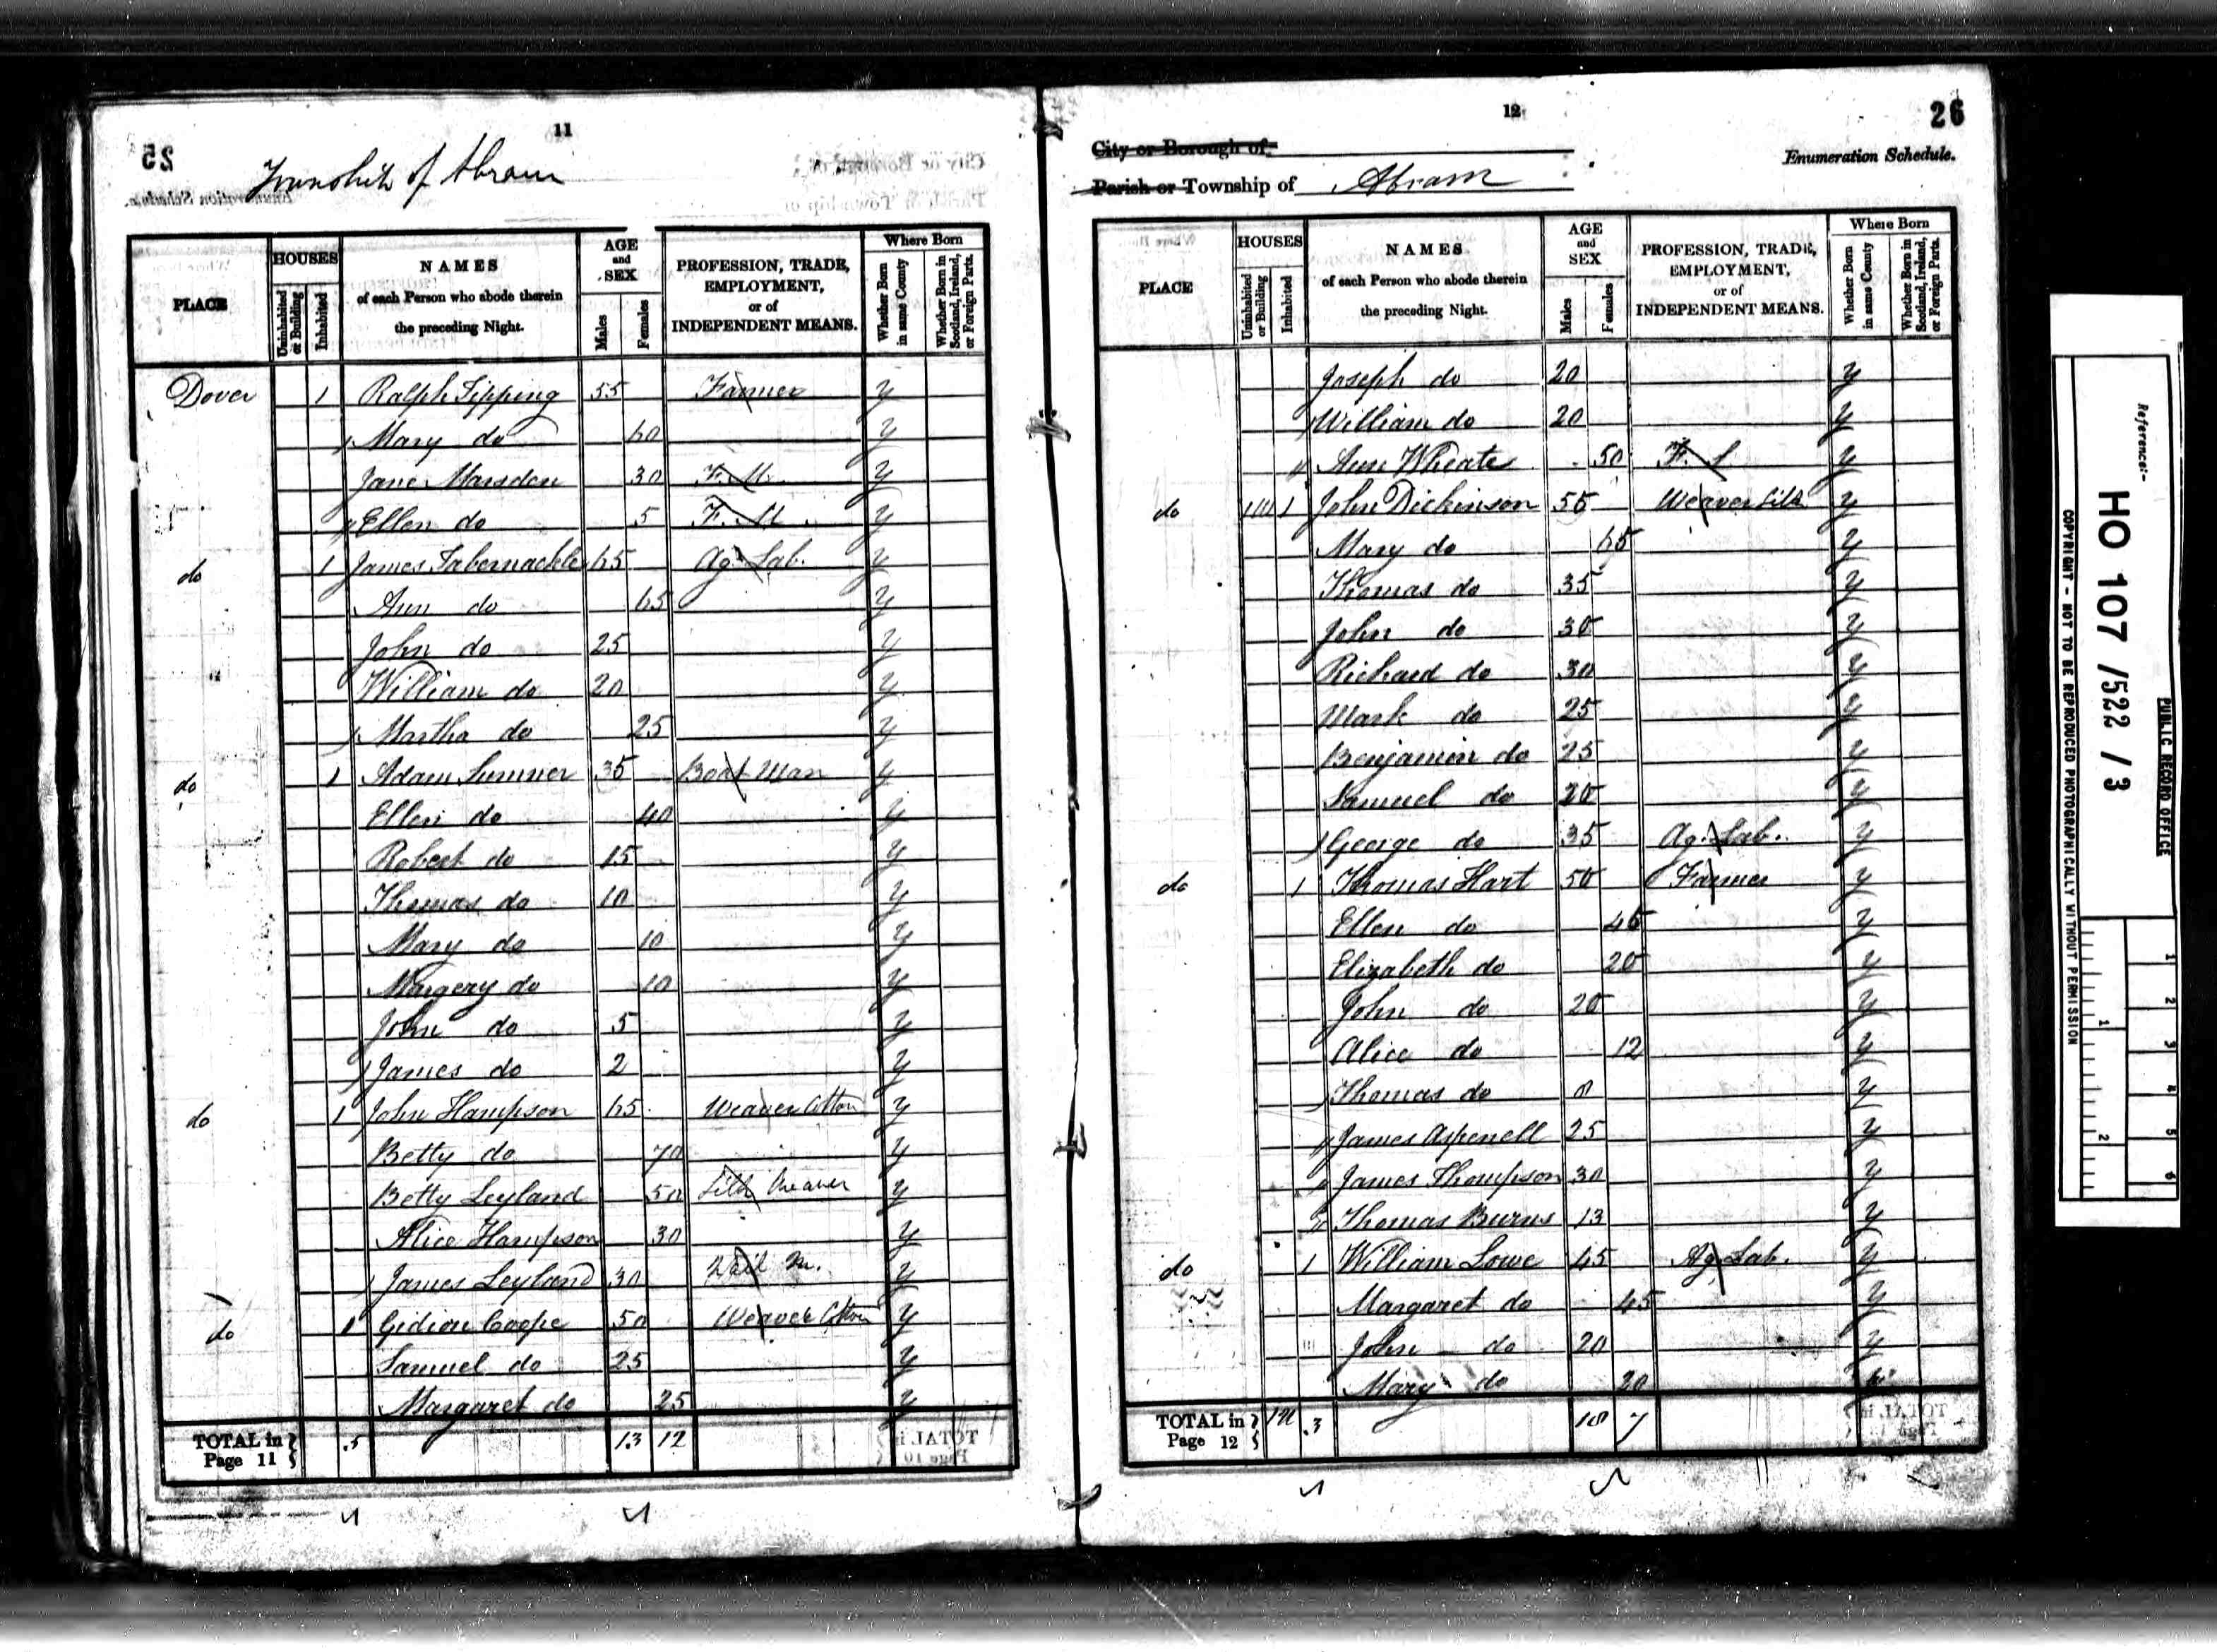 11
Township of Abram
PLACE
HOUSES
Uninhabited or Building
Inhabited
NAMES
of each Person who abode therein
the preceding Night.
AGE
and
SEX
Males
Females
PROFESSION, TRADE,
EMPLOYMENT,
or of
INDEPENDENT MEANS.
Where Born
Whether Born in same County
Whether Born in Scotland, Ireland, or Foreign Parts.
Dover 1 Ralph Tipping 55 Farmer y
Mary do 60 y
Jane Marsden 30 F. M. y
Ellen do 5 F. M. y
do 1 James Tabernackle 65 Ag. Lab. y
Ann do 65 y
John do 25 y
William do 20 y
Martha do 25 y
do 1 Adam Sumner 35 Boat Man y
Ellen do 40 y
Robert do 15 y
Thomas do 10 y
Mary do 10 y
Margery do 10 y
John do 5 y
James do 2 y
do 1 John Hampson 65 Weaver Cotton y
Betty do 70 y
Betty Leyland 50 Silk Weaver y
Alice Hampson 30 y
James Leyland 30 Nail M. y
do 1 Gidion Coope 50 Weaver Cotton y
Samuel do 25 y
Margaret do 25 y
TOTAL in Page 11 5 13 12
12
26
City or Borough of
Enumeration Schedule.
Parish or Township of Abram
PLACE
HOUSES
Uninhabited or Building
Inhabited
NAMES
of each Person who abode therein
the preceding Night.
AGE
and
SEX
Males
Females
PROFESSION, TRADE,
EMPLOYMENT,
or of
INDEPENDENT MEANS.
Where Born
Whether Born in same County
Whether Born in Scotland, Ireland, or Foreign Parts.
Joseph do 20 y
William do 20 y
Ann Wheate 50 F. S y
do 1 John Dickinson 55 Weaver Silk y
Mary do 65 y
Thomas do 35 y
John do 30 y
Richard do 30 y
Mark do 25 y
Benjamin do 25 y
Samuel do 20 y
George do 35 Ag. Lab. y
do 1 Thomas Hart 50 Farmer y
Ellen do 45 y
Elizabeth do 20 y
John do 20 y
Alice do 12 y
Thomas do 8 y
James Aspenell 25 y
James Thompson 30 y
Thomas Burns 13 y
do 1 William Lowe 45 Ag. Lab. y
Margaret do 45 y
John do 20 y
Mary do 20
TOTAL in Page 12 3 18 7
Reference:-
HO 107 /522 / 3
PUBLIC RECORD OFFICE
COPYRIGHT - NOT TO BE REPRODUCED PHOTOGRAPHICALLY WITHOUT PERMISSION
1 2
1 2 3 4 5 6